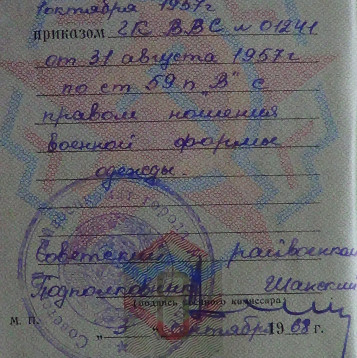 1 октября 1957 г
приказом ГК ВВС № 01241
от 31 августа 1957 г
по ст 59 п „В" с
правом ношения
военной формы
одежды.
Советский райвоенком
Подполковник Шанский
(подпись военного комиссара)
М. П. „3" октября 1968 г.